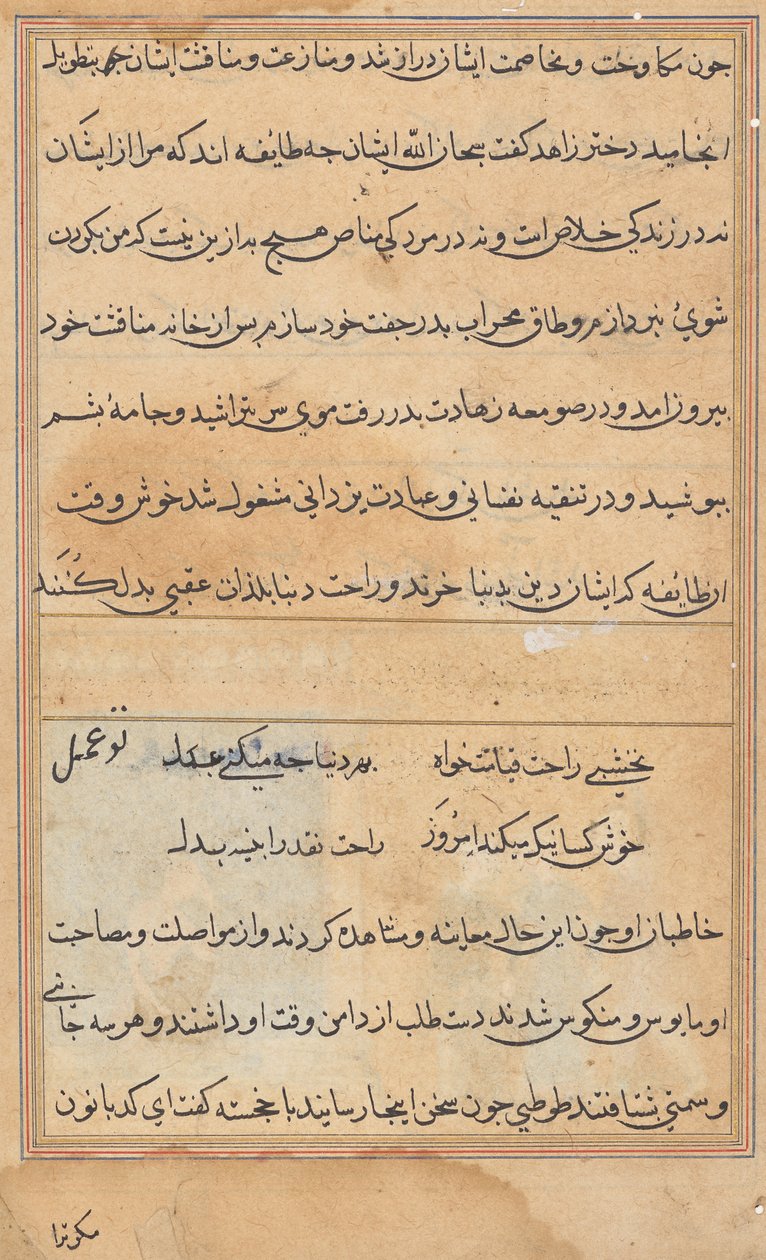 چون مکاوحت و مخاصمت ایشان دراز شد و منازعت و مناقشت ایشان بتطویل
انجامید دختر زاهد کفت سبحان الله ایشان جه طائفه اند که مرا از ایشان
نه در زندکی خلاص است و نه در مردکی مناص هیچ به ازین نیست که من بکردن
شوی نبردازم و طاق محراب بدر جفت خود سازم بس از خانه مناقشت خود
بیرون امد و در صومعه زهادت بدر رفت موی سر بتراشید و جامهٔ بشم
ببوشید و در تنقیه نفسانی و عبادت یزدانی مشغول شد خوش وقت
ان طائفه که ایشان دین بدنیا خرند و راحت دنیا بلذات عقبی بدل کُنَند
نخشبی راحت قیامت خواه بهر دنیا جه میکنی عمل تو عمل
خوش کسانیکه میکنند امرُوَز راحت نقد را بنسیه بدل
خاطبان او جون این حال معاینه و مشاهده کردند و از مواصلت و مصاحبت
او مایوس و منکوس شدند دست طلب از دامن وقت او داشتند و هر سه جانبی
و سمتی بشتافتند طوطی جون سخن اینجا رسانید با خجسته کفت ای کدبانو
مکر ترا